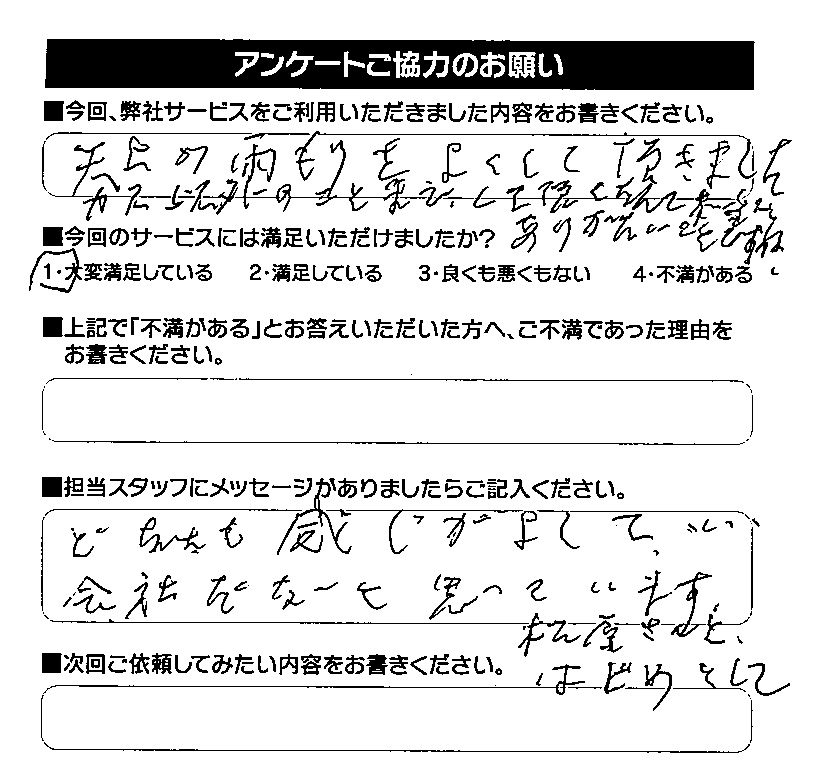 アンケートご協力のお願い
■今回、弊社サービスをご利用いただきました内容をお書きください。
天上の雨もりをよくして頂きました
ありがとうございます
■今回のサービスには満足いただけましたか?
1・大変満足している 2・満足している 3・良くも悪くもない 4・不満がある
■上記で「不満がある」とお答えいただいた方へ、ご不満であった理由を
お書きください。
■担当スタッフにメッセージがありましたらご記入ください。
どなたも感じがよくて、いい
会社だな〜と思っています。
松原さんを、
はじめとして
■次回ご依頼してみたい内容をお書きください。